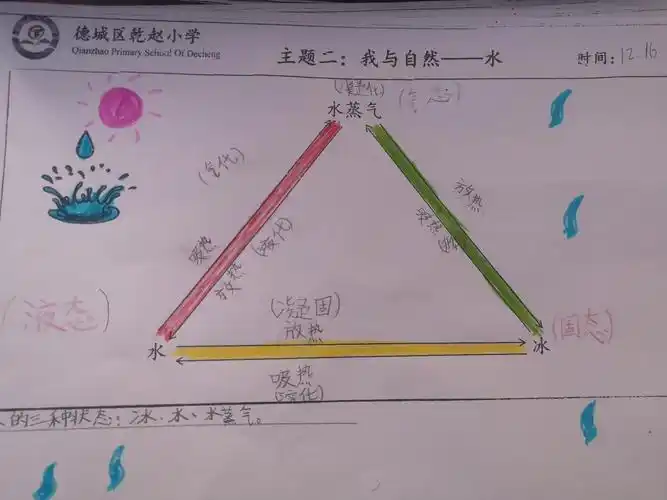 德城区乾赵小学
Qianzhao Primary School Of Decheng
主题二：我与自然——水
时间：12.16
水蒸气
(气态)
(气化)
放热
吸热
吸热
放热
(液化)
(液态)
(凝固)
放热
水
冰
(固态)
吸热
的三种状态：冰、水、水蒸气。